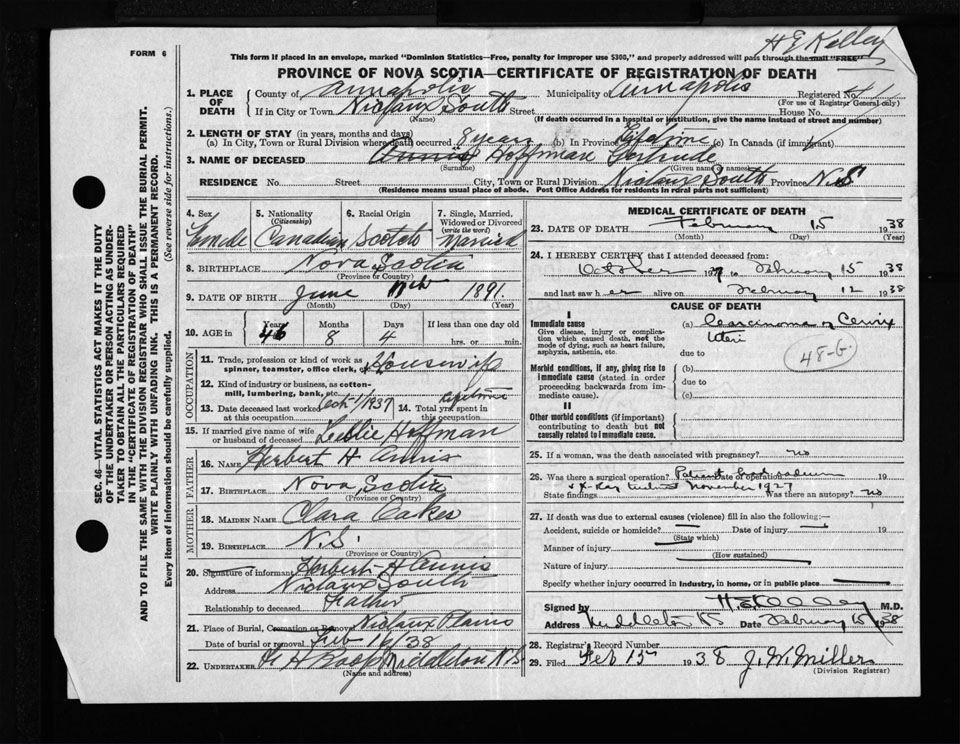 H E Kelley
FORM 6
This form if placed in an envelope, marked "Dominion Statistics—Free, penalty for improper use $300," and properly addressed will pass through the mail "FREE"
PROVINCE OF NOVA SCOTIA—CERTIFICATE OF REGISTRATION OF DEATH
1. PLACE OF DEATH County of Annapolis Municipality of Annapolis Registered No.
(For use of Registrar General only)
If in City or Town Nictaux South Street House No.
(Name) (If death occurred in a hospital or institution, give the name instead of street and number)
2. LENGTH OF STAY (in years, months and days)
(a) In City, Town or Rural Division where death occurred 8 years (b) In Province Lifetime (c) In Canada (if immigrant)
3. NAME OF DECEASED Annis Hoffman Gertrude
(Surname) (Given name or names)
RESIDENCE No. Street City, Town or Rural Division Nictaux South Province N.S
(Residence means usual place of abode. Post Office Address for residents in rural parts not sufficient)
4. Sex Female
5. Nationality (Citizenship) Canadian
6. Racial Origin Scotch
7. Single, Married, Widowed or Divorced (write the word) Married
8. BIRTHPLACE Nova Scotia
(Province or Country)
9. DATE OF BIRTH June 1891.
(Month) (Day) (Year)
10. AGE in Years 46 Months 8 Days 4 If less than one day old hrs. or min.
OCCUPATION
11. Trade, profession or kind of work as spinner, teamster, office clerk, etc. Housewife
12. Kind of industry or business, as cotton-mill, lumbering, bank, etc.
13. Date deceased last worked at this occupation Oct 1/1937 14. Total yrs. spent in this occupation Lifetime
15. If married give name of wife or husband of deceased Leslie Hoffman
FATHER
16. NAME Herbert H Annis
17. BIRTHPLACE Nova Scotia
(Province or Country)
MOTHER
18. MAIDEN NAME Clara Oakes
19. BIRTHPLACE N.S.
(Province or Country)
20. Signature of informant Herbert H Annis
Address Nictaux South
Relationship to deceased Father
21. Place of Burial, Cremation or Removal Nictaux Plains
Date of burial or removal Feb 16/38
22. UNDERTAKER Middleton N.S
(Name and address)
MEDICAL CERTIFICATE OF DEATH
23. DATE OF DEATH February 15 1938
(Month) (Day) (Year)
24. I HEREBY CERTIFY that I attended deceased from:
October 1937 to February 15 1938
and last saw her alive on February 12 1938
CAUSE OF DEATH
I
Immediate cause
Give disease, injury or complication which caused death, not the mode of dying, such as heart failure, asphyxia, asthenia, etc.
(a) Carcinoma of Cervix Uteri
48-G.
due to
Morbid conditions, if any, giving rise to immediate cause (stated in order proceeding backwards from immediate cause).
(b)
due to
(c)
II
Other morbid conditions (if important) contributing to death but not causally related to immediate cause.
25. If a woman, was the death associated with pregnancy? no
26. Was there a surgical operation? Patient had radium Date of operation
& X-Ray November 1937
State findings Was there an autopsy? no
27. If death was due to external causes (violence) fill in also the following:—
Accident, suicide or homicide? Date of injury 19
(State which)
Manner of injury
(How sustained)
Nature of injury
Specify whether injury occurred in industry, in home, or in public place
Signed by H E Kelley M.D.
Address Middleton NS Date February 15/1938
28. Registrar's Record Number
29. Filed Feb 15 1938 J. W. Miller
(Division Registrar)
SEC. 46—VITAL STATISTICS ACT MAKES IT THE DUTY
OF THE UNDERTAKER OR PERSON ACTING AS UNDERTAKER TO OBTAIN ALL THE PARTICULARS REQUIRED
IN THE "CERTIFICATE OF REGISTRATION OF DEATH"
AND TO FILE THE SAME WITH THE DIVISION REGISTRAR WHO SHALL ISSUE THE BURIAL PERMIT.
WRITE PLAINLY WITH UNFADING INK. THIS IS A PERMANENT RECORD.
Every item of information should be carefully supplied. (See reverse side for instructions.)